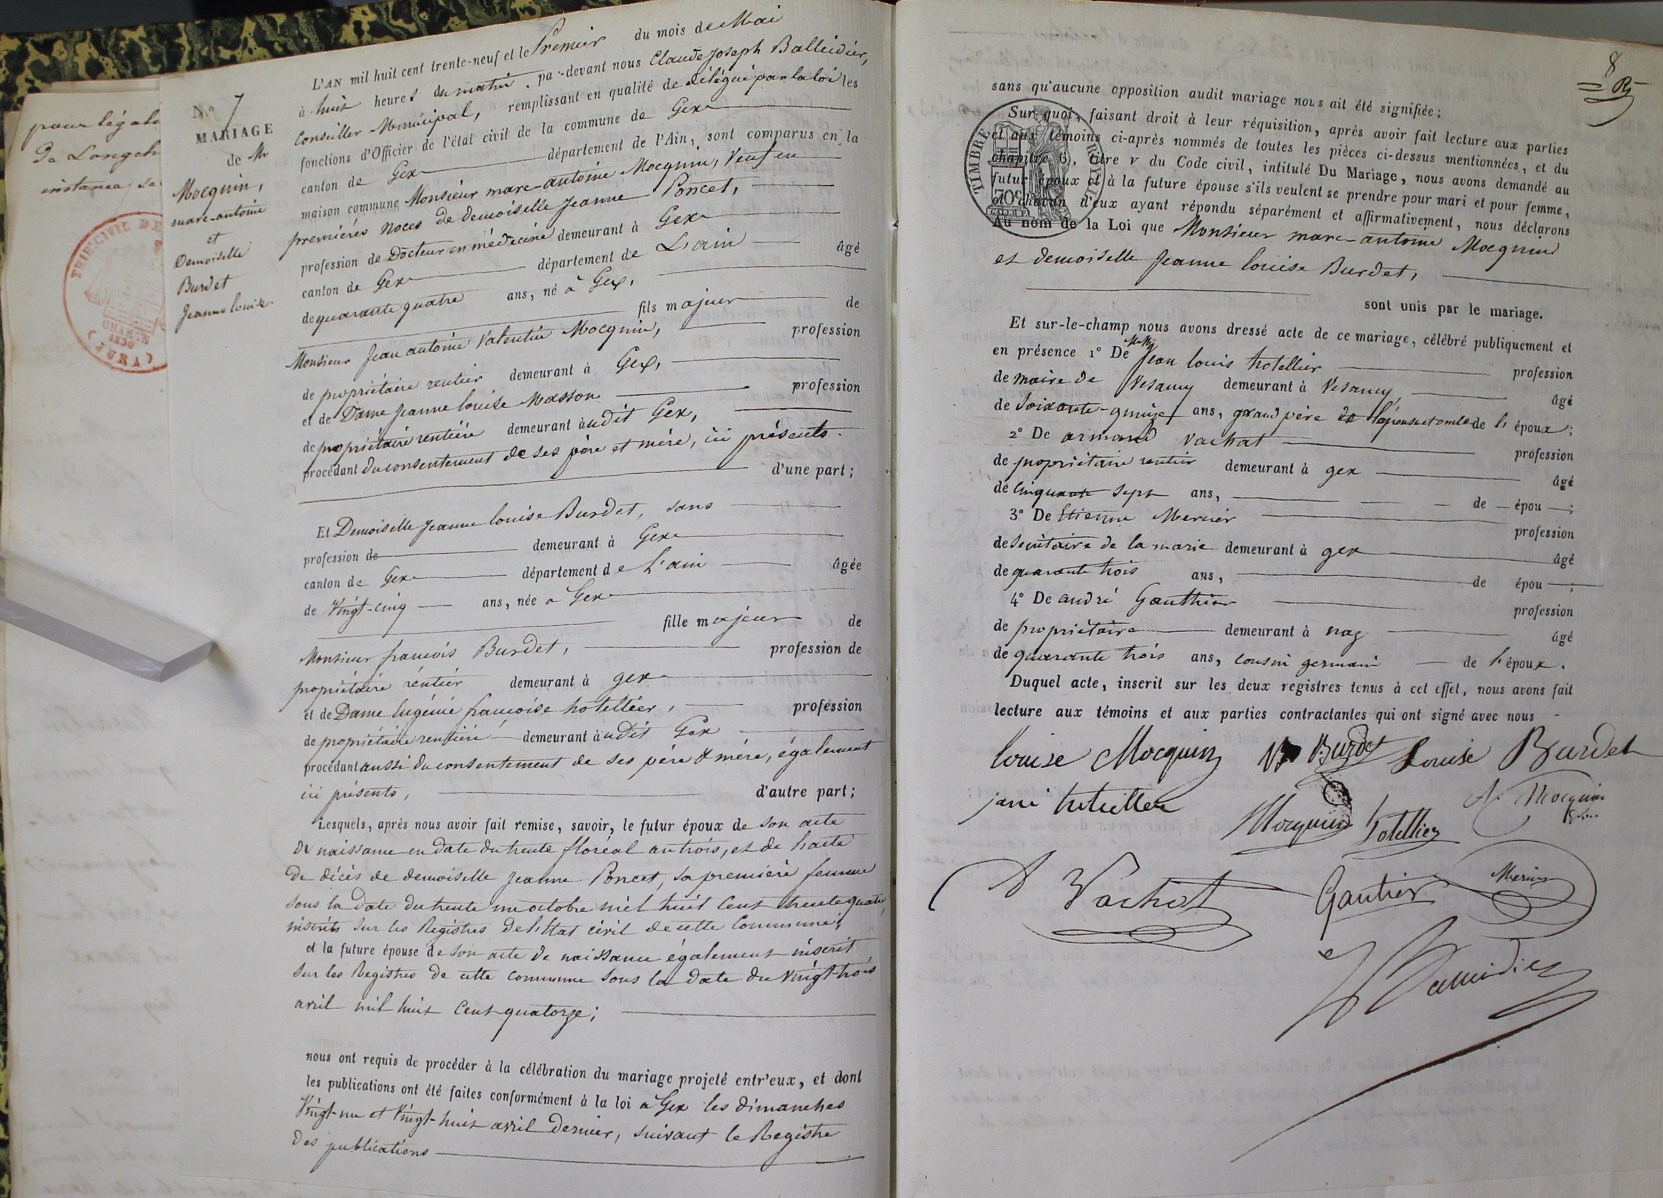 pour légal
De Longch
instance, se
TRIB. CIVIL DE
CHARTE
1830
N.º 7
MARIAGE
de Mr
Mocquin,
marc-antoine
et
Demoiselle
Burdet
Jeanne louise
L'AN mil huit cent trente-neuf et le Premier du mois de Mai
à huit heures du matin, par-devant nous Claude Joseph Balleidier,
Conseiller Municipal, remplissant en qualité de délégué par la loi les
fonctions d'Officier de l'état civil de la commune de Gex
canton de Gex département de l'Ain, sont comparus en la
maison commune Monsieur marc-antoine Mocquin, Veuf en
premières noces de demoiselle Jeanne Poncet,
profession de Docteur en médecine demeurant à Gex
canton de Gex département de L'ain âgé
de quarante quatre ans, né à Gex,
fils majeur de
Monsieur Jean antoine Valentin Mocquin, profession
de propriétaire rentier demeurant à Gex,
et de Dame Jeanne louise Masson profession
de propriétaire rentière demeurant audit Gex,
procédant du consentement de ses père et mère, ici présents.
d'une part;
Et Demoiselle Jeanne louise Burdet, sans
profession de demeurant à Gex
canton de Gex département de L'ain âgée
de Vingt-cinq ans, née à Gex
fille majeure de
Monsieur françois Burdet, profession de
propriétaire rentier demeurant à gex
et de Dame Eugénie françoise hotellier, profession
de propriétaire rentière demeurant audit Gex
procédant aussi du consentement de ses père & mère, également
ici présents, d'autre part;
Lesquels, après nous avoir fait remise, savoir, le futur époux de son acte
de naissance en date du trente floréal an trois, et de l'acte
de décès de demoiselle Jeanne Poncet, sa première femme
sous la date du trente un octobre mil huit cent trente quatre,
inscrits sur les Registres de l'Etat civil de cette Commune;
et la future épouse de son acte de naissance également inscrit
sur les Registres de cette commune sous la date du vingt-trois
avril mil huit cent quatorze;
nous ont requis de procéder à la célébration du mariage projeté entr'eux, et dont
les publications ont été faites conformément à la loi à Gex les dimanches
Vingt-un et Vingt-huit avril dernier, suivant le Registre
des publications
8
sans qu'aucune opposition audit mariage nous ait été signifiée;
Sur quoi, faisant droit à leur réquisition, après avoir fait lecture aux parties
et aux témoins ci-après nommés de toutes les pièces ci-dessus mentionnées, et du
chapitre 6, titre v du Code civil, intitulé Du Mariage, nous avons demandé au
futur époux et à la future épouse s'ils veulent se prendre pour mari et pour femme,
et chacun d'eux ayant répondu séparément et affirmativement, nous déclarons
Au nom de la Loi que Monsieur marc-antoine Mocquin
et demoiselle Jeanne louise Burdet,
TIMBRE ROYAL
70c
sont unis par le mariage.
Et sur-le-champ nous avons dressé acte de ce mariage, célébré publiquement et
en présence 1º De Jean louis hotellier profession
de maire de Vesancy demeurant à Vesancy, âgé
de soixante-quinze ans, grand père de l'épouse et oncle de l'époux;
2º De armand Vachat profession
de propriétaire rentier demeurant à gex âgé
de cinquante sept ans, de épou ;
3º De Etienne Mercier profession
de secrétaire de la mairie demeurant à gex âgé
de quarante trois ans, de épou ;
4º De andré Gauthier profession
de propriétaire demeurant à nag âgé
de quarante trois ans, cousin germain de l'époux.
Duquel acte, inscrit sur les deux registres tenus à cet effet, nous avons fait
lecture aux témoins et aux parties contractantes qui ont signé avec nous
louise Mocquin Burdet Louise Burdet
hotellier Mocquin hotellier Mocquin
A Vachat Gautier Mercier
Balleidier